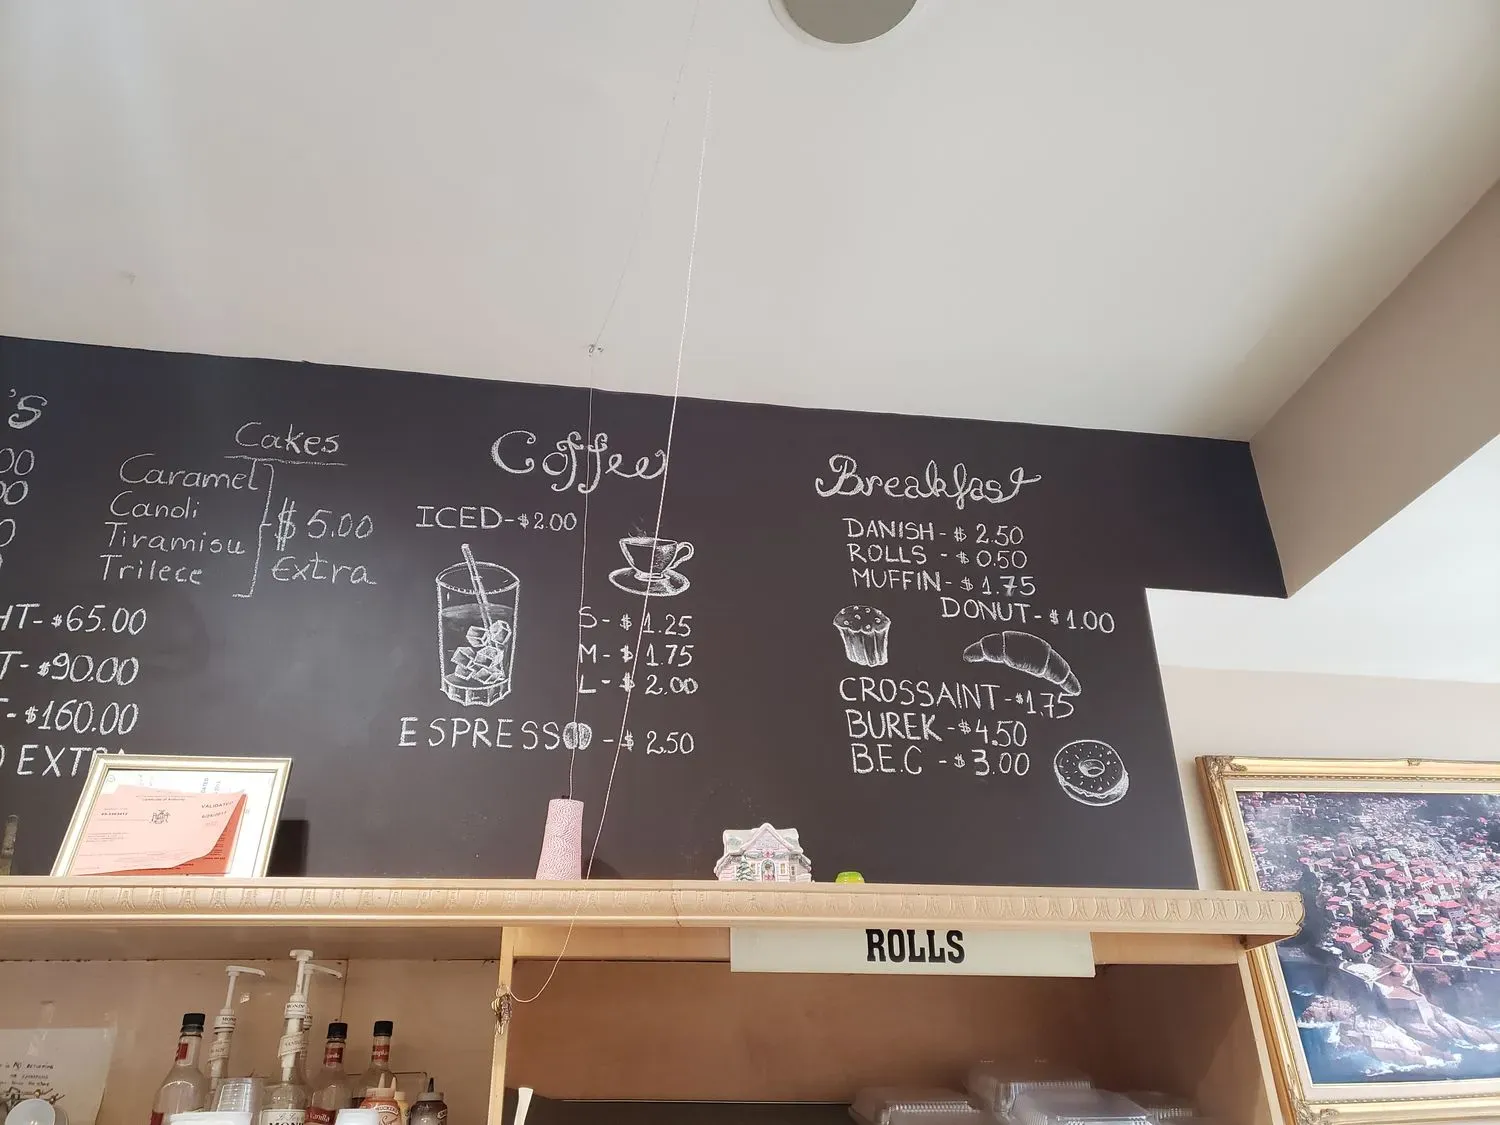 'S
00
00
0
Cakes
Caramel
Canoli
Tiramisu
Trilece
$5.00
Extra
HT-$65.00
T-$90.00
T-$160.00
EXTRA
Coffee
ICED-$2.00
S-$1.25
M-$1.75
L-$2.00
ESPRESSO-$2.50
Breakfast
DANISH-$2.50
ROLLS-$0.50
MUFFIN-$1.75
DONUT-$1.00
CROSSAINT-$1.75
BUREK-$4.50
B.E.C-$3.00
VALIDATED
ROLLS
Vanilla